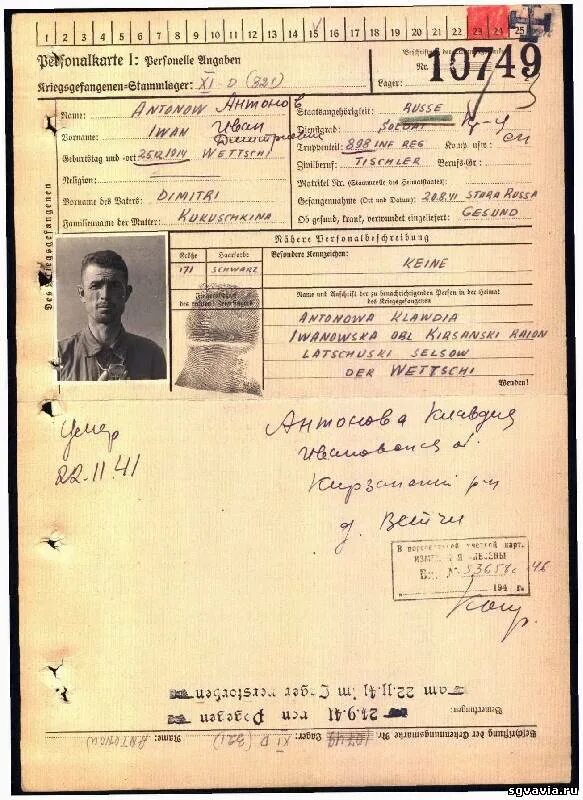 1 2 3 4 5 6 7 8 9 10 11 12 13 14 15 16 17 18 19 20 21 22 23 24 25
Personalkarte I: Personelle Angaben
Kriegsgefangenen-Stammlager: XI-D (321)
Beschriftung der
Nr. 10749
Lager:
Des Kriegsgefangenen
Name: ANTONOW Антонов
Vorname: IWAN Иван Дмитриевич
Geburtstag und -ort 25.12.1914 WETTSCHI
Religion:
Vorname des Vaters: DIMITRI
Familienname der Mutter: KUKUSCHKINA
Staatsangehörigkeit: RUSSE
Dienstgrad: SOLDAT Кр-ц
Truppenteil: 898 INF REG Komp. usw.:
Zivilberuf: TISCHLER Berufs-Gr.:
Matrikel Nr. (Stammrolle des Heimatstaates)
Gefangennahme (Ort und Datum): 20.8.41 STARA RUSSA
Ob gesund, krank, verwundet eingeliefert: GESUND
Nähere Personalbeschreibung
Größe Haarfarbe
171 SCHWARZ
Fingerabdruck
des rechten Zeigefingers
Besondere Kennzeichen:
KEINE
Name und Anschrift der zu benachrichtigenden Person in der Heimat
des Kriegsgefangenen
ANTONOWA KLAWDIA
IWANOWSKA OBL KIRSANSKI RAION
LATSCHUSKI SELSOW
DER WETTSCHI
Wenden!
Умер
22.11.41
Антонова Клавдия
Ивановская об.
Кирзанский р-н
д. Ветчи
В персональной учетной карт.
ИЗМЕНЕНИЯ ВНЕСЕНЫ
Вх. № 53658с 46
194 г.
am 22.11.41 im Lager verstorben
24.9.41 von Pogegen
Bemerkungen:
Beschriftung der Erkennungsmarke Nr. 10749 Lager: XI D (321) Name: ANTONOW
sgvavia.ru